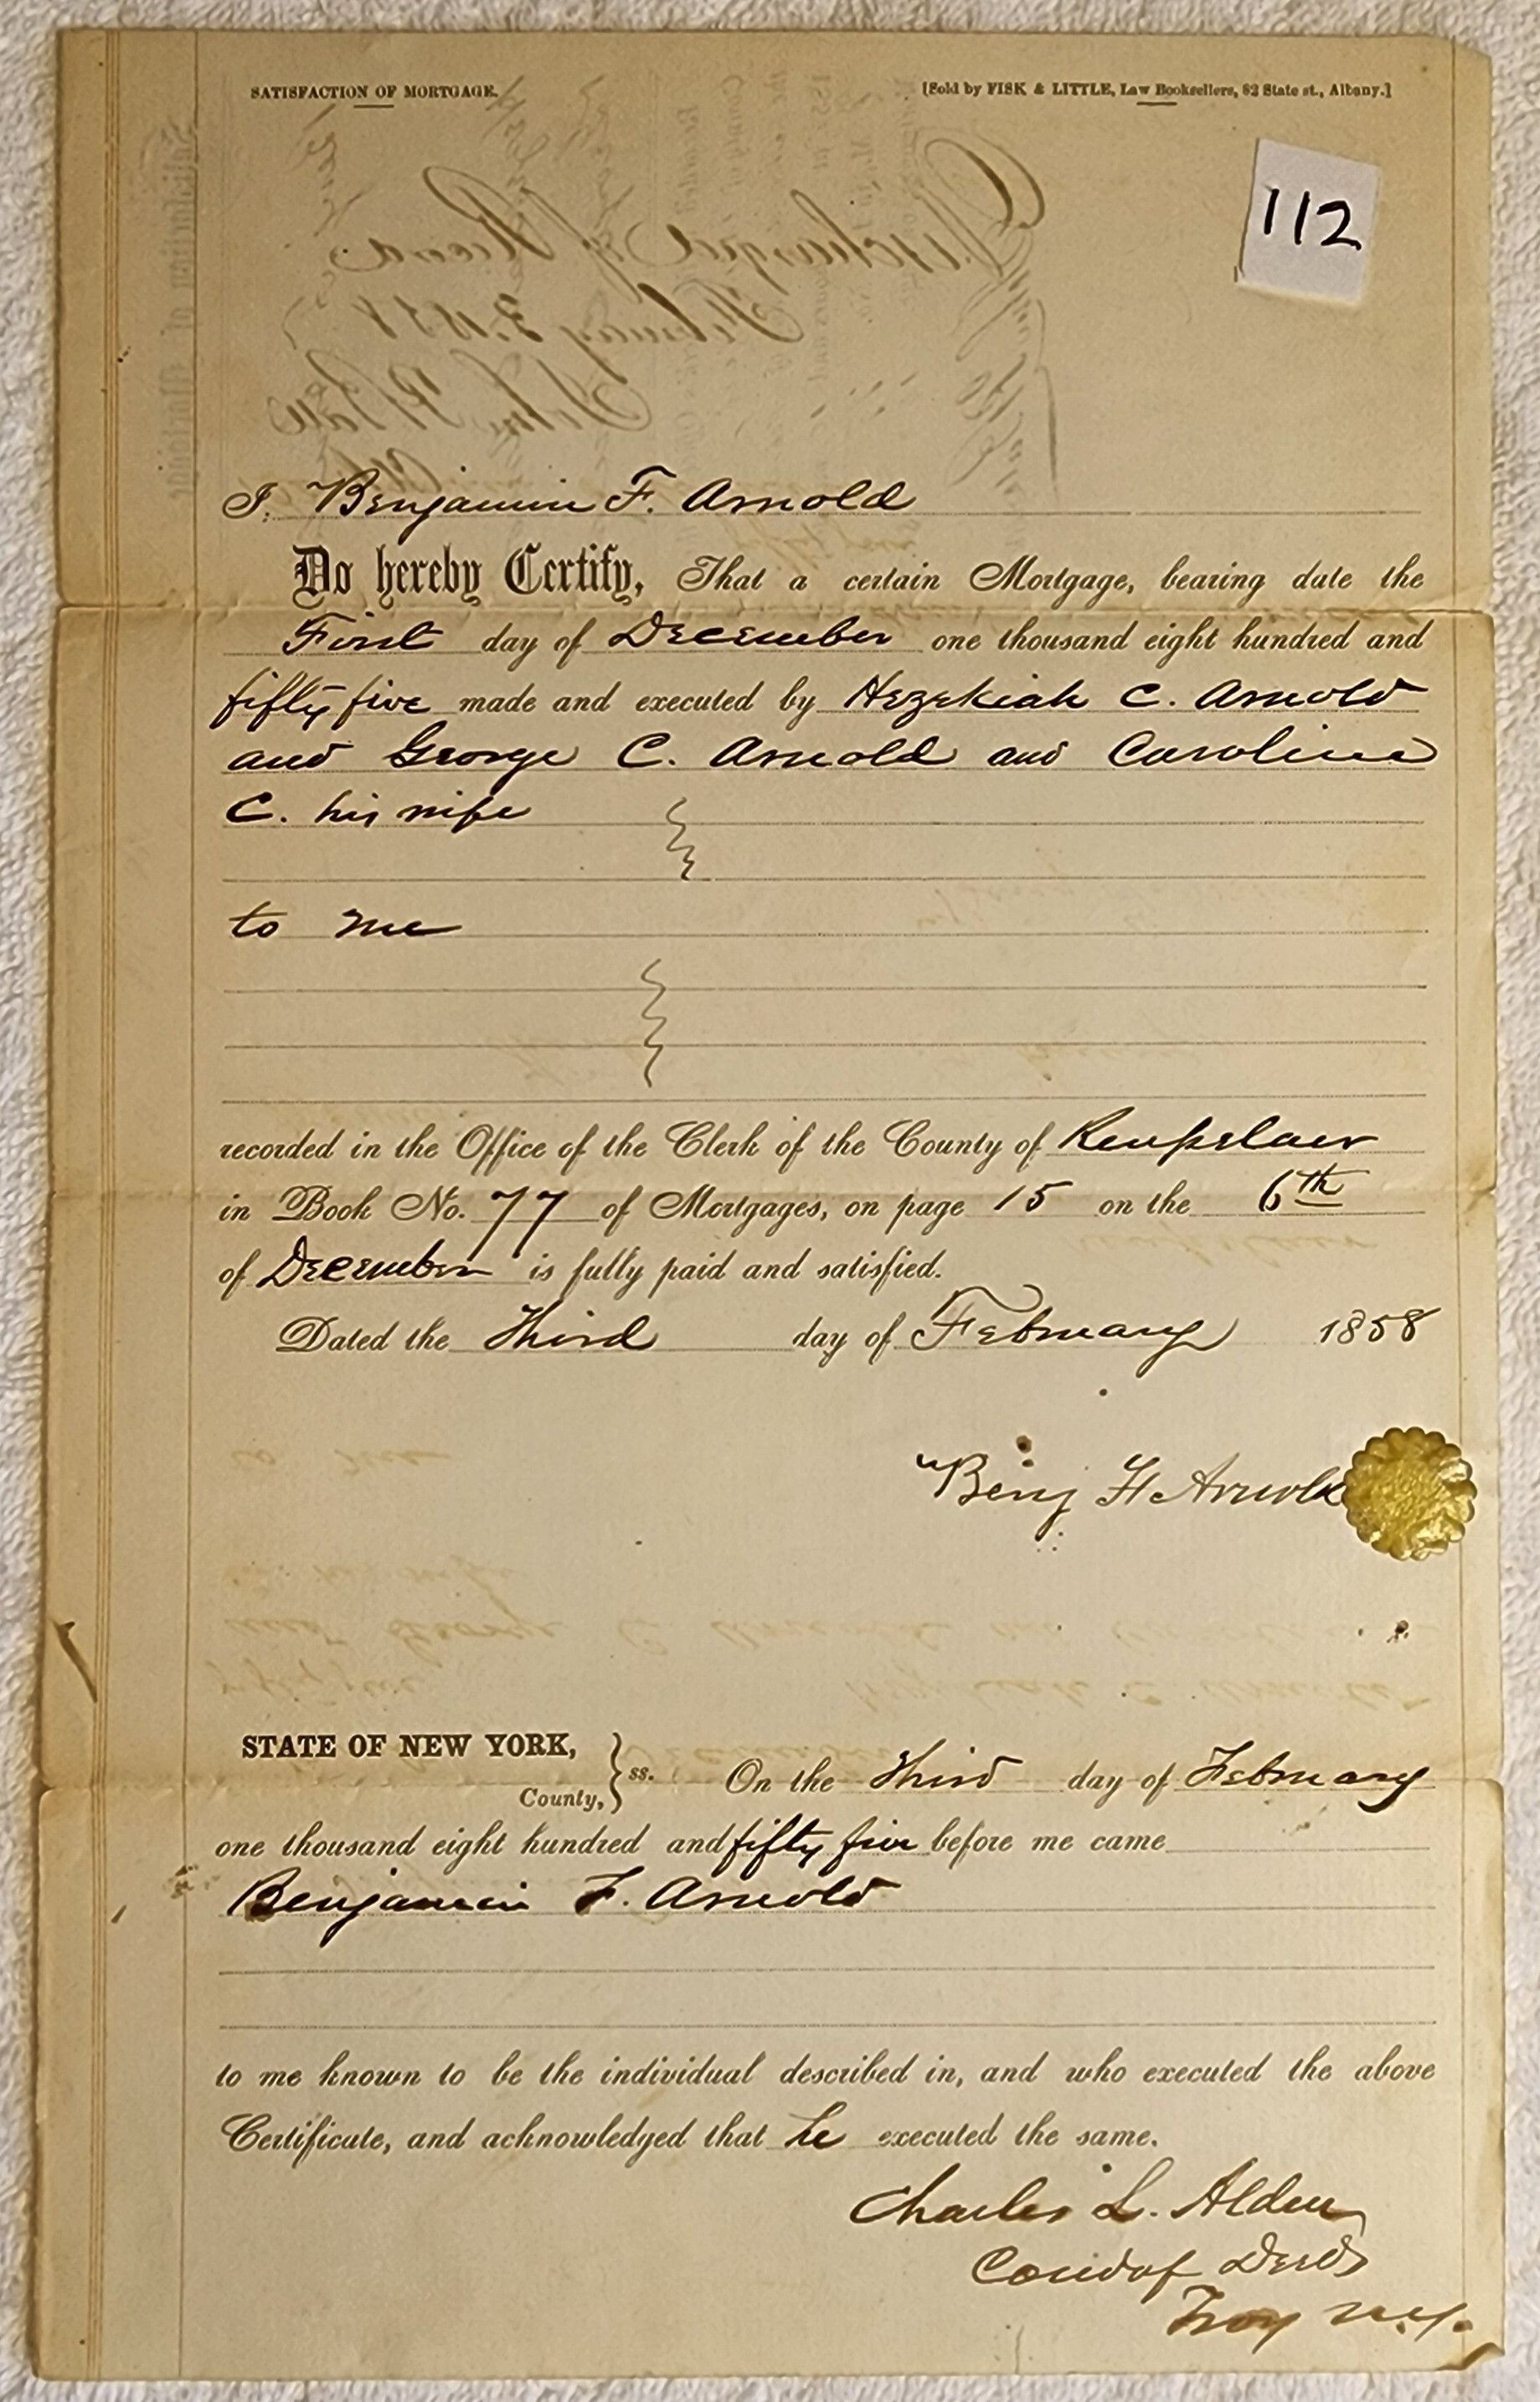 SATISFACTION OF MORTGAGE.
[Sold by FISK & LITTLE, Law Booksellers, 82 State st., Albany.]
112
Discharged of Record
February 3. 1858
John P Ball
I. Benjamin F. Arnold
Do hereby Certify, That a certain Mortgage, bearing date the
First day of December one thousand eight hundred and
fifty five made and executed by Hezekiah C. Arnold
and George C. Arnold and Caroline
C. his wife
to me
recorded in the Office of the Clerk of the County of Rensselaer
in Book No. 77 of Mortgages, on page 15 on the 6th
of December is fully paid and satisfied.
Dated the Third day of February 1858
Benj F. Arnold
STATE OF NEW YORK,
County, } ss. On the Third day of February
one thousand eight hundred and fifty five before me came
Benjamin F. Arnold
to me known to be the individual described in, and who executed the above
Certificate, and acknowledged that he executed the same.
Charles L. Alden
Com of Deeds
Troy N.Y.